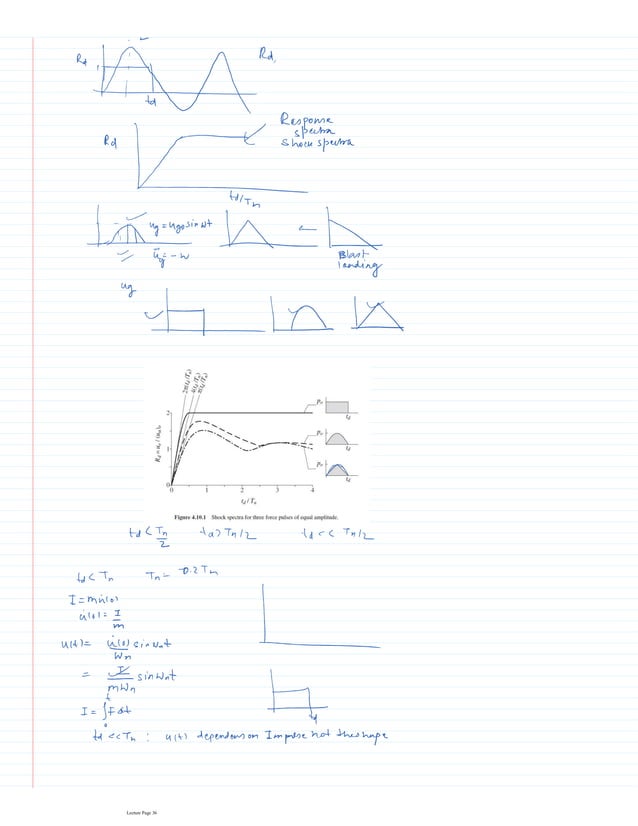 Rd
Rd,
td
Response
spectra
Shock spectra
Rd
td/Tn
ug = ugo sin ωt
Blast
ug
2πtd/Tn)
4(td/Tn)
πtd/Tn)
2
1
0
Rd = uo / (ust)o
0 1 2 3 4
td / Tn
po
td
po
td
po
td
Figure 4.10.1 Shock spectra for three force pulses of equal amplitude.
td < Tn/2 td > Tn/2 td << Tn/2
td < Tn Tn = 0.2 Tn
I = mu̇(0)
u̇(0) = I/m
u(t) = u̇(0)/ωn sin ωnt
= I/mωn sin ωnt
I = ∫ F dt
td
td << Tn : u(t) depends on Impulse not the shape
Lecture Page 36